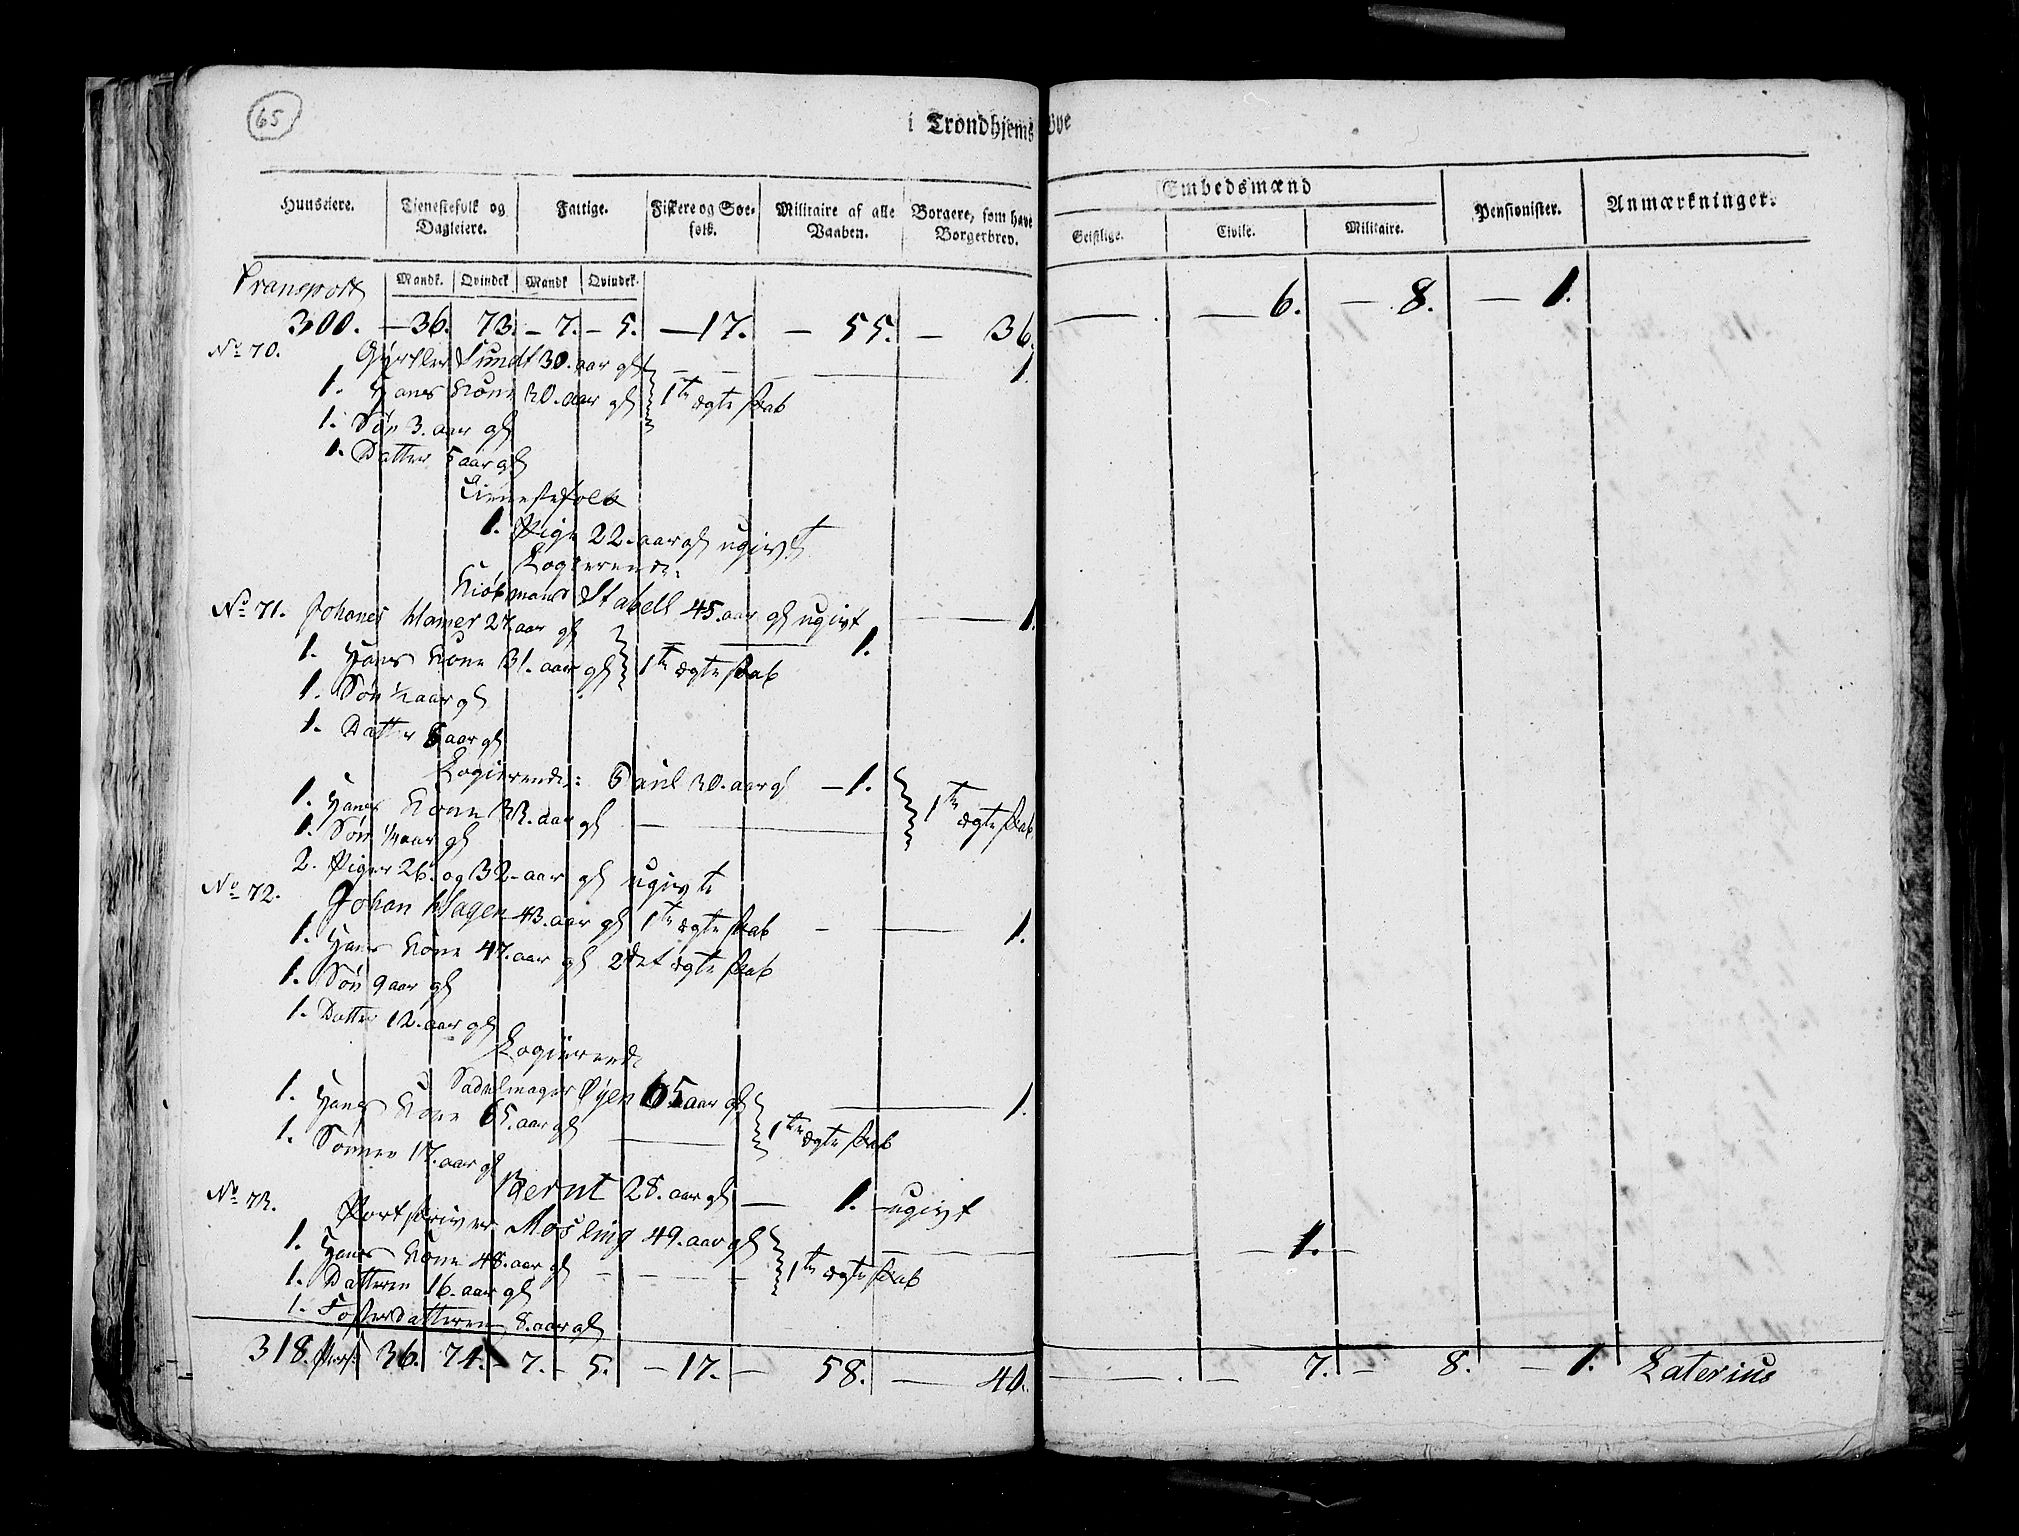 65
i Trondhjems
Huuseiere. Tienestefolk og Dagleiere. Fattige. Fiskere og Søefolk. Militaire af alle Vaaben. Borgere, som have Borgerbrev. Embedsmænd Pensionister. Anmærkninger.
Geistlige. Civile. Militaire.
Mandk. Qvindek Mandk Qvindek.
Transport
300. — 36. 73. — 7. — 5. — 17. — 55. — 36. — 6. — 8. — 1.
No 70. Gyrtler Sundt 30. aar gl — 1.
1. Hans Kone 30. aar gl 1te ægteskab
1. Søn 3. aar gl
1. Datter 5 aar gl
Tienestefolk
1. Pige 22. aar gl ugivt
Logierende:
Kiøbmand Stabell 45. aar gl ugivt — 1.
No 71. Johanes Hamer 27. aar gl — 1.
1. Hans Kone 31. aar gl 1te ægteskab
1. Søn ½ aar gl
1. Datter 8 aar gl
Logierende: Paul 30. aar gl — 1.
1. Hans Kone 33. aar gl 1te ægteskab
1. Søn ¼ aar gl
2. Piger 26. og 32. aar gl ugivte
No 72. Johan Hagen 43. aar gl 1te ægteskab — 1.
1. Hans Kone 47. aar gl 2det ægteskab
1. Søn 9 aar gl
1. Datter 12. aar gl
Logierende
Sadelmager Øyen 65 aar gl — 1.
1. Hans Kone 65. aar gl 1te ægteskab
1. Sønnen 17. aar gl
Bernt 28. aar gl — 1. ugivt
No 73. Portskriver Mosling 49. aar gl — 1. —
1. Hans Kone 48. aar gl 1te ægteskab
1. Datteren 16. aar gl
1. Fosterdatteren 8. aar gl
318. Pers: 36. 74. — 7. — 5. — 17. — 58. — 40. — 7. — 8. — 1. Laterius